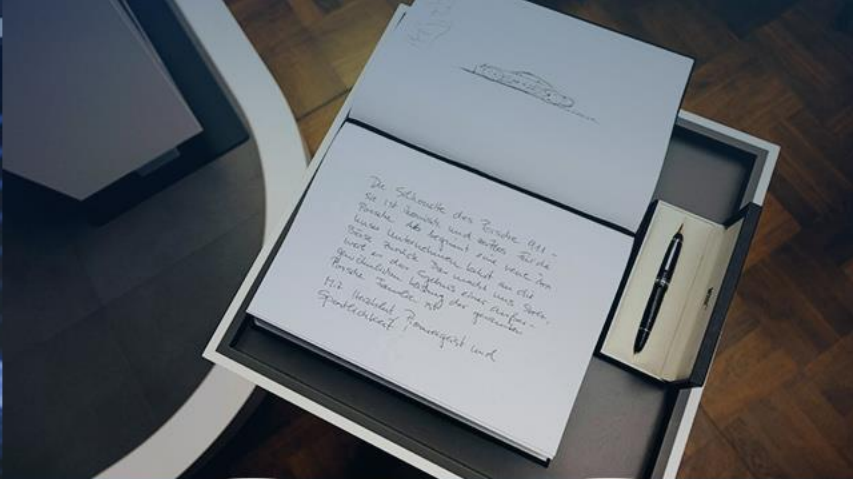 Die Silhouette des Porsche 911 -
sie ist ikonisch und zeitlos. Für die
Porsche AG beginnt eine neue Ära
Unser Unternehmen kehrt an die
Börse zurück. Das macht uns stolz,
weil es das Ergebnis einer außer-
gewöhnlichen Leistung der gesamten
Porsche Familie ist.
Mit Herzblut, Pioniergeist und
Sportlichkeit.